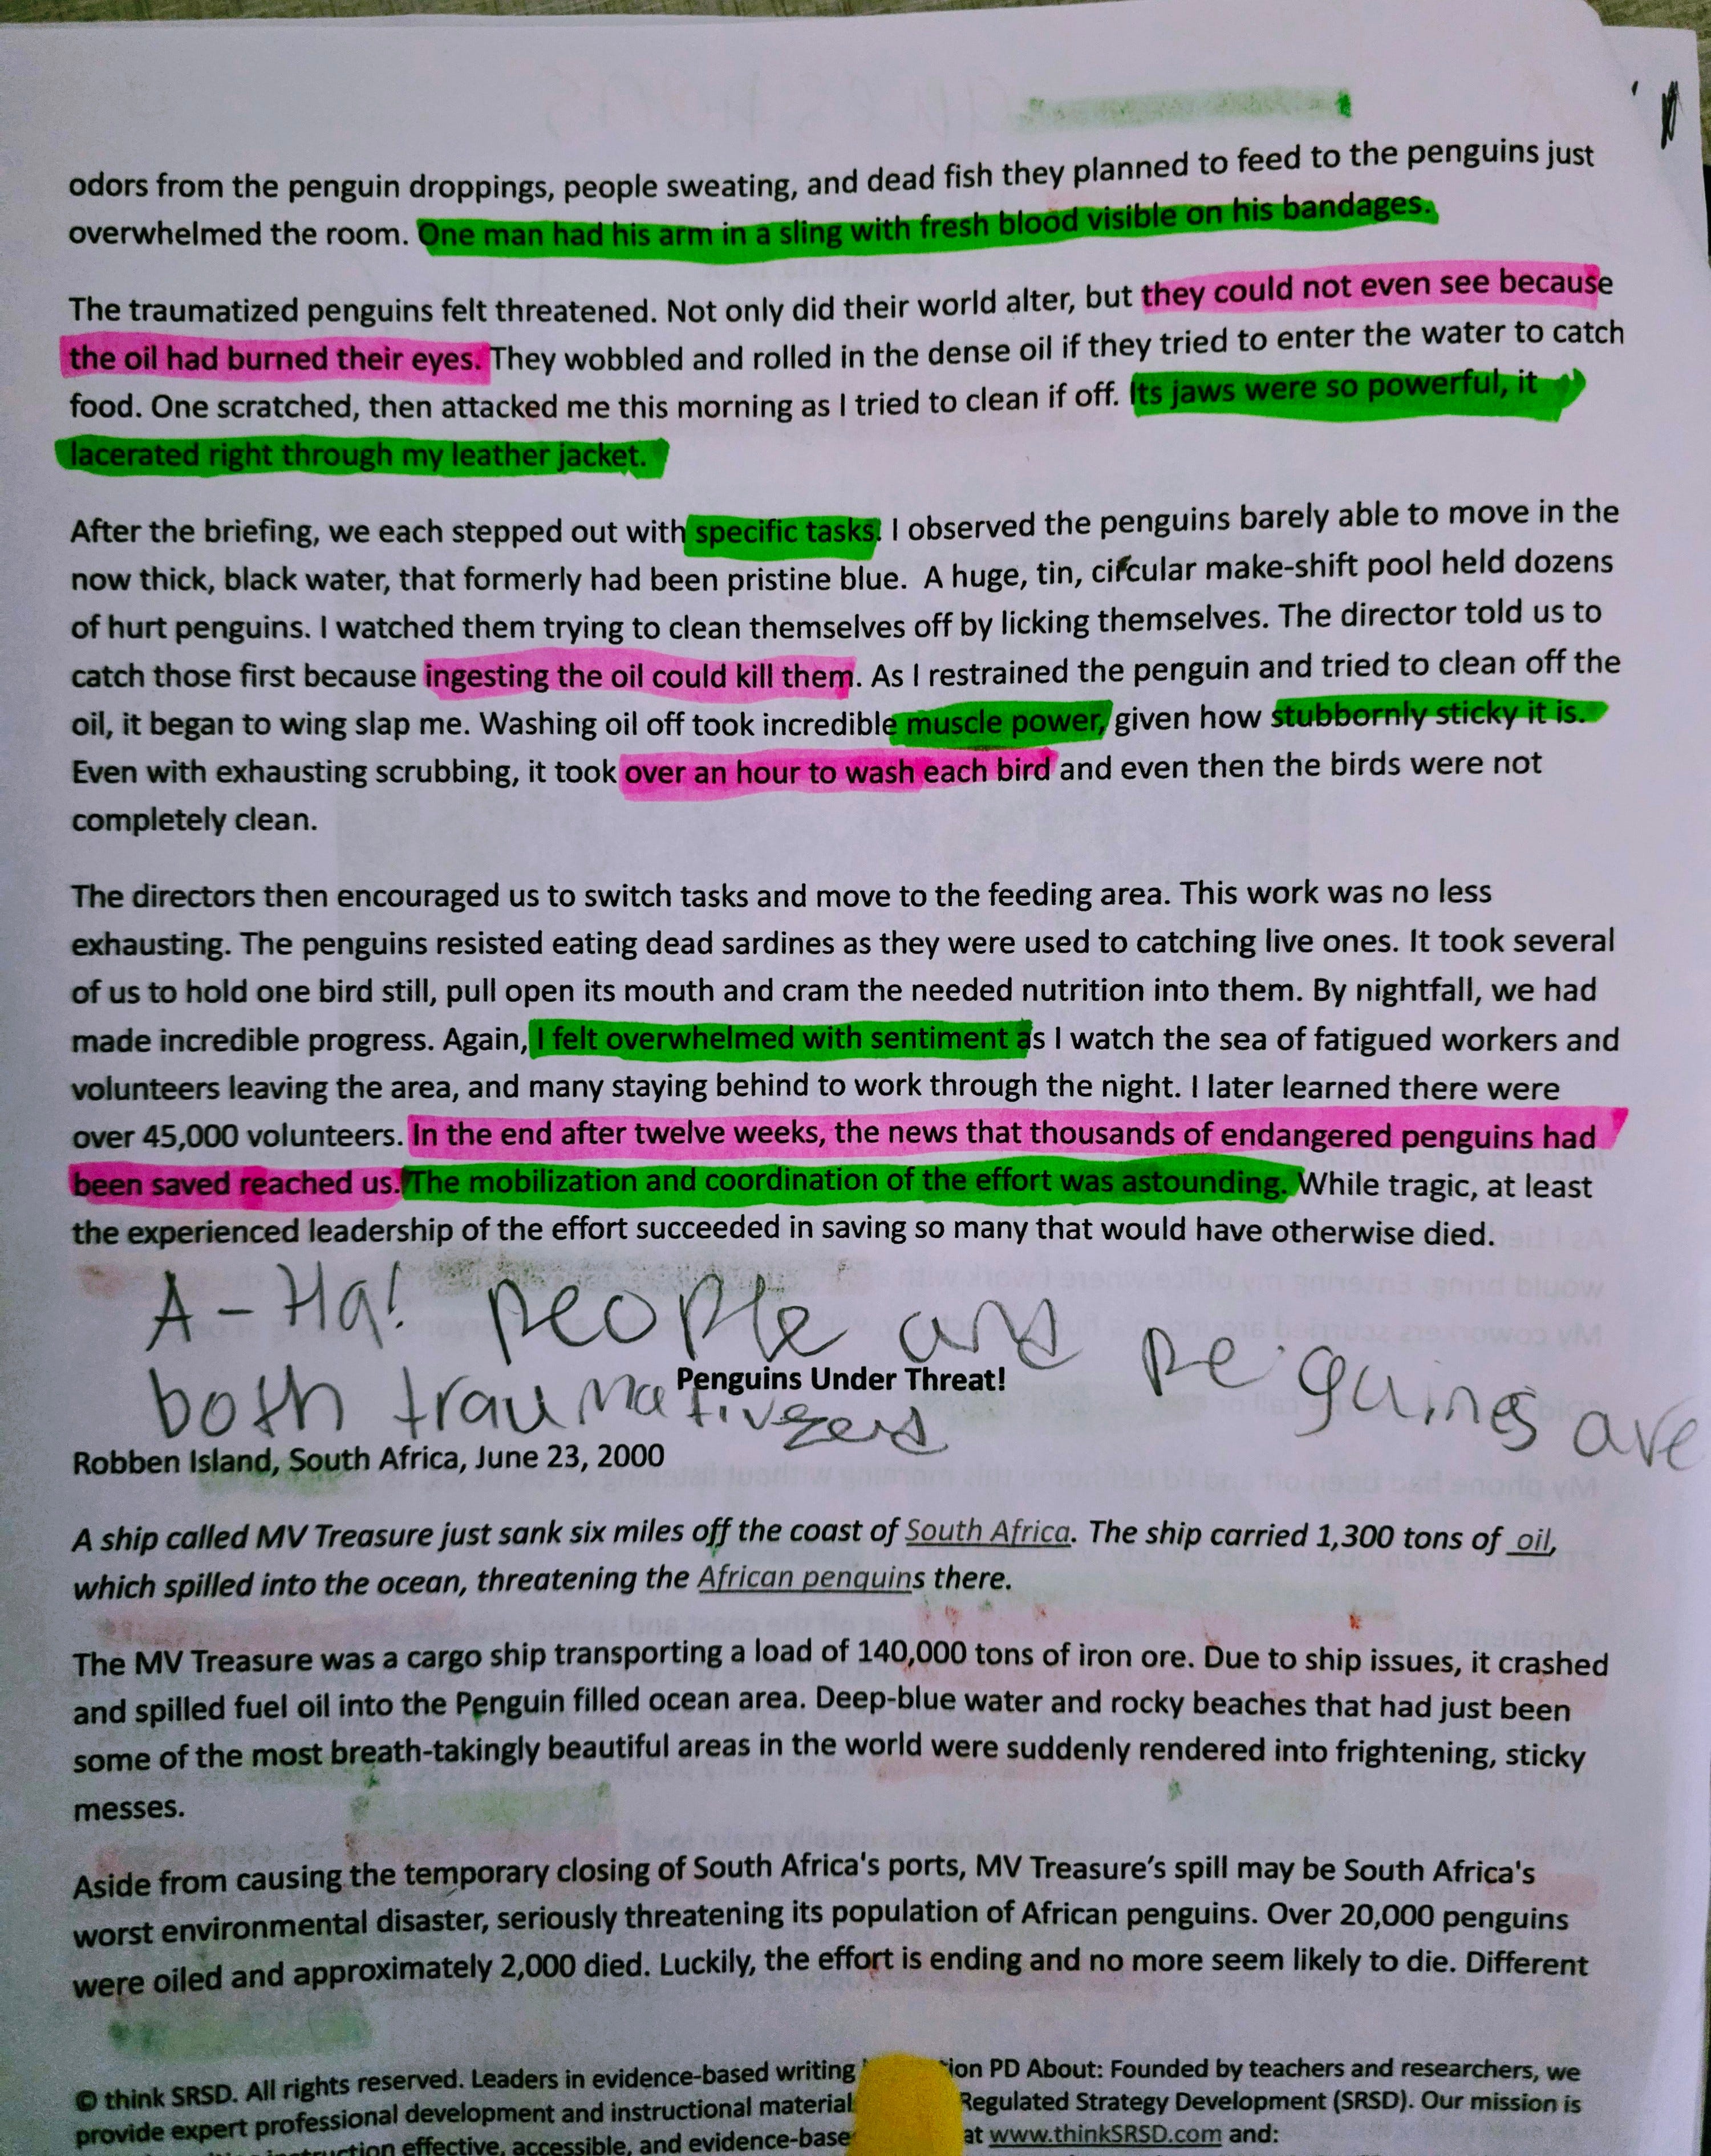 odors from the penguin droppings, people sweating, and dead fish they planned to feed to the penguins just
overwhelmed the room. One man had his arm in a sling with fresh blood visible on his bandages.
The traumatized penguins felt threatened. Not only did their world alter, but they could not even see because
the oil had burned their eyes. They wobbled and rolled in the dense oil if they tried to enter the water to catch
food. One scratched, then attacked me this morning as I tried to clean if off. Its jaws were so powerful, it
lacerated right through my leather jacket.
After the briefing, we each stepped out with specific tasks. I observed the penguins barely able to move in the
now thick, black water, that formerly had been pristine blue. A huge, tin, circular make-shift pool held dozens
of hurt penguins. I watched them trying to clean themselves off by licking themselves. The director told us to
catch those first because ingesting the oil could kill them. As I restrained the penguin and tried to clean off the
oil, it began to wing slap me. Washing oil off took incredible muscle power, given how stubbornly sticky it is.
Even with exhausting scrubbing, it took over an hour to wash each bird and even then the birds were not
completely clean.
The directors then encouraged us to switch tasks and move to the feeding area. This work was no less
exhausting. The penguins resisted eating dead sardines as they were used to catching live ones. It took several
of us to hold one bird still, pull open its mouth and cram the needed nutrition into them. By nightfall, we had
made incredible progress. Again, I felt overwhelmed with sentiment as I watch the sea of fatigued workers and
volunteers leaving the area, and many staying behind to work through the night. I later learned there were
over 45,000 volunteers. In the end after twelve weeks, the news that thousands of endangered penguins had
been saved reached us. The mobilization and coordination of the effort was astounding. While tragic, at least
the experienced leadership of the effort succeeded in saving so many that would have otherwise died.
A-Ha! people and peguings are
both traumativezed
Penguins Under Threat!
Robben Island, South Africa, June 23, 2000
A ship called MV Treasure just sank six miles off the coast of South Africa. The ship carried 1,300 tons of oil,
which spilled into the ocean, threatening the African penguins there.
The MV Treasure was a cargo ship transporting a load of 140,000 tons of iron ore. Due to ship issues, it crashed
and spilled fuel oil into the Penguin filled ocean area. Deep-blue water and rocky beaches that had just been
some of the most breath-takingly beautiful areas in the world were suddenly rendered into frightening, sticky
messes.
Aside from causing the temporary closing of South Africa's ports, MV Treasure's spill may be South Africa's
worst environmental disaster, seriously threatening its population of African penguins. Over 20,000 penguins
were oiled and approximately 2,000 died. Luckily, the effort is ending and no more seem likely to die. Different
© think SRSD. All rights reserved. Leaders in evidence-based writing PD About: Founded by teachers and researchers, we
provide expert professional development and instructional material Regulated Strategy Development (SRSD). Our mission is
effective, accessible, and at www.thinkSRSD.com and: